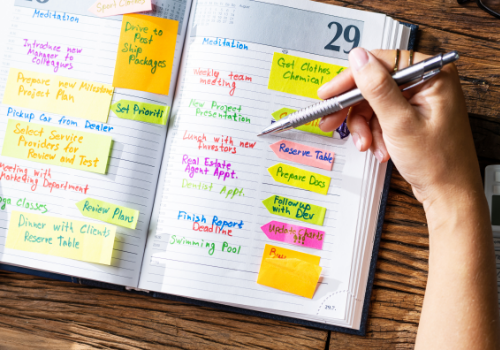 Sports Class
Meditation
Drive to
Post
Ship
Packages
Introduce new
Manager to
colleagues
Prepare new Milestone
Project Plan
Set Priority
Pickup Car from Dealer
Select Service
Providers for
Review and Test
Meeting with
Marketing Department
Yoga Classes
Review Plans
Dinner with Clients
Reserve Table
29
Meditation
Get Clothes
Chemical
Weekly team
meeting
New Project
Presentation
Lunch with new
investors
Reserve Table
Real Estate
Agent Appt.
Prepare Docs
Dentist Appt.
Followup
with Dev
Finish Report
Deadline
Update Charts
Swimming Pool